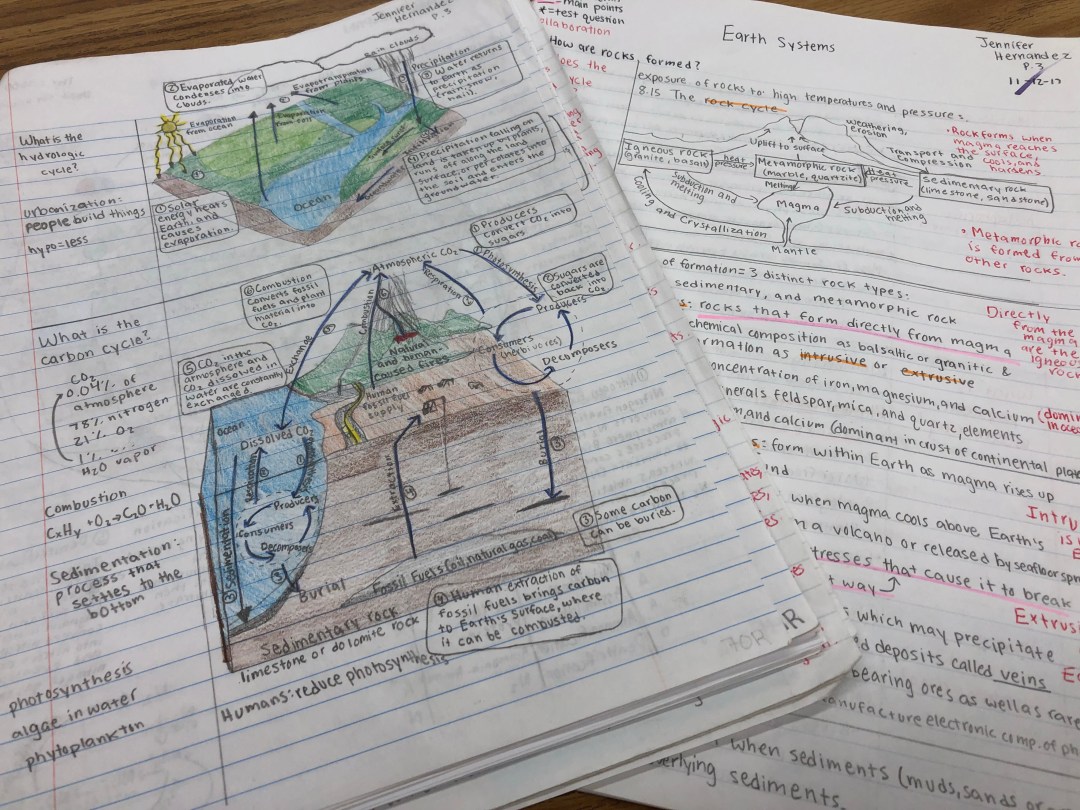 Jennifer
Hernandez
P.3
What is the
hydrologic
cycle?
urbanization:
people build things
hypo=less
rain clouds
② Evaporated water
condenses into
clouds.
Evapotranspiration
from plants
Evaporation
from ocean
Evaporation
from soil
Precipitation
③ Water returns
to Earth as
precipitation
(rain, snow,
hail).
④ Precipitation falling on
land is taken up by plants,
runs along the land
surface, or percolates into
the soil and enters the
groundwater.
Ocean
① Solar
energy heats
Earth and
causes
evaporation.
What is the
carbon cycle?
CO₂
0.04% of
atmosphere
78% nitrogen
21% O₂
1% ...
H₂O vapor
Combustion
CxHy + O₂→C₂O+H₂O
Sedimentation:
process that
settles to the
bottom
photosynthesis
algae in water
phytoplankton
① Producers
convert CO₂ into
sugars
Atmospheric CO₂
① Photosynthesis
Respiration
② Sugars are
converted
back into
CO₂
Producers
Consumers
(herbivores)
Decomposers
⑥ Combustion
converts fossil
fuels and plant
material into
CO₂.
Combustion
Exchange
Natural
and human-
caused fires
⑤ CO₂ in the
atmosphere and
CO₂ dissolved in
water are constantly
exchanged
Human
fossil fuel
supply
ocean
Dissolved CO₂
Respiration
Producers
Consumers
Decomposers
③ Sedimentation
Extraction
Burial ③
③ Some carbon
can be buried.
③ Burial
Fossil Fuels (oil, natural gas, coal)
④ Human extraction of
fossil fuels brings carbon
to Earth's surface, where
it can be combusted.
Sedimentary rock
limestone or dolomite rock
Humans: reduce photosynthesis
R
main points
*=test question
collaboration
Earth Systems
Jennifer
Hernandez
P.3
11-12-17
How are rocks formed?
does the
cycle
exposure of rocks to high temperatures and pressures.
8.15 The rock cycle
weathering,
erosion
Uplift to surface
Transport and
compression
Igneous rock
(granite, basalt)
heat
pressure
Metamorphic rock
(marble, quartzite)
Heat
pressure
Sedimentary rock
(limestone, sandstone)
Melting
Magma
Subduction and
melting
Subduction and
melting
Cooling
and Crystallization
Mantle
• Rock forms when
magma reaches
the surface,
cools, and
hardens
• Metamorphic ro
is formed from
other rocks.
of formation = 3 distinct rock types:
sedimentary, and metamorphic rock
s: rocks that form directly from magma
Directly
from the
magma
are the
igneou
rock
chemical composition as balsaltic or granitic &
ormation as intrusive or extrusive
concentration of iron, magnesium, and calcium
nerals feldspar, mica, and quartz, elements
, and calcium (dominant in crust of continental plate
s: form within Earth as magma rises up
ind
when magma cools above Earth's
Intru
n a volcano or released by seafloor spr
tresses that cause it to break
t way
Extrusi
which may precipitate
d deposits called veins
bearing ores as well as rare
anufacture electronic comp. of ph
when sediments (muds, sands, or
erlying sediments.